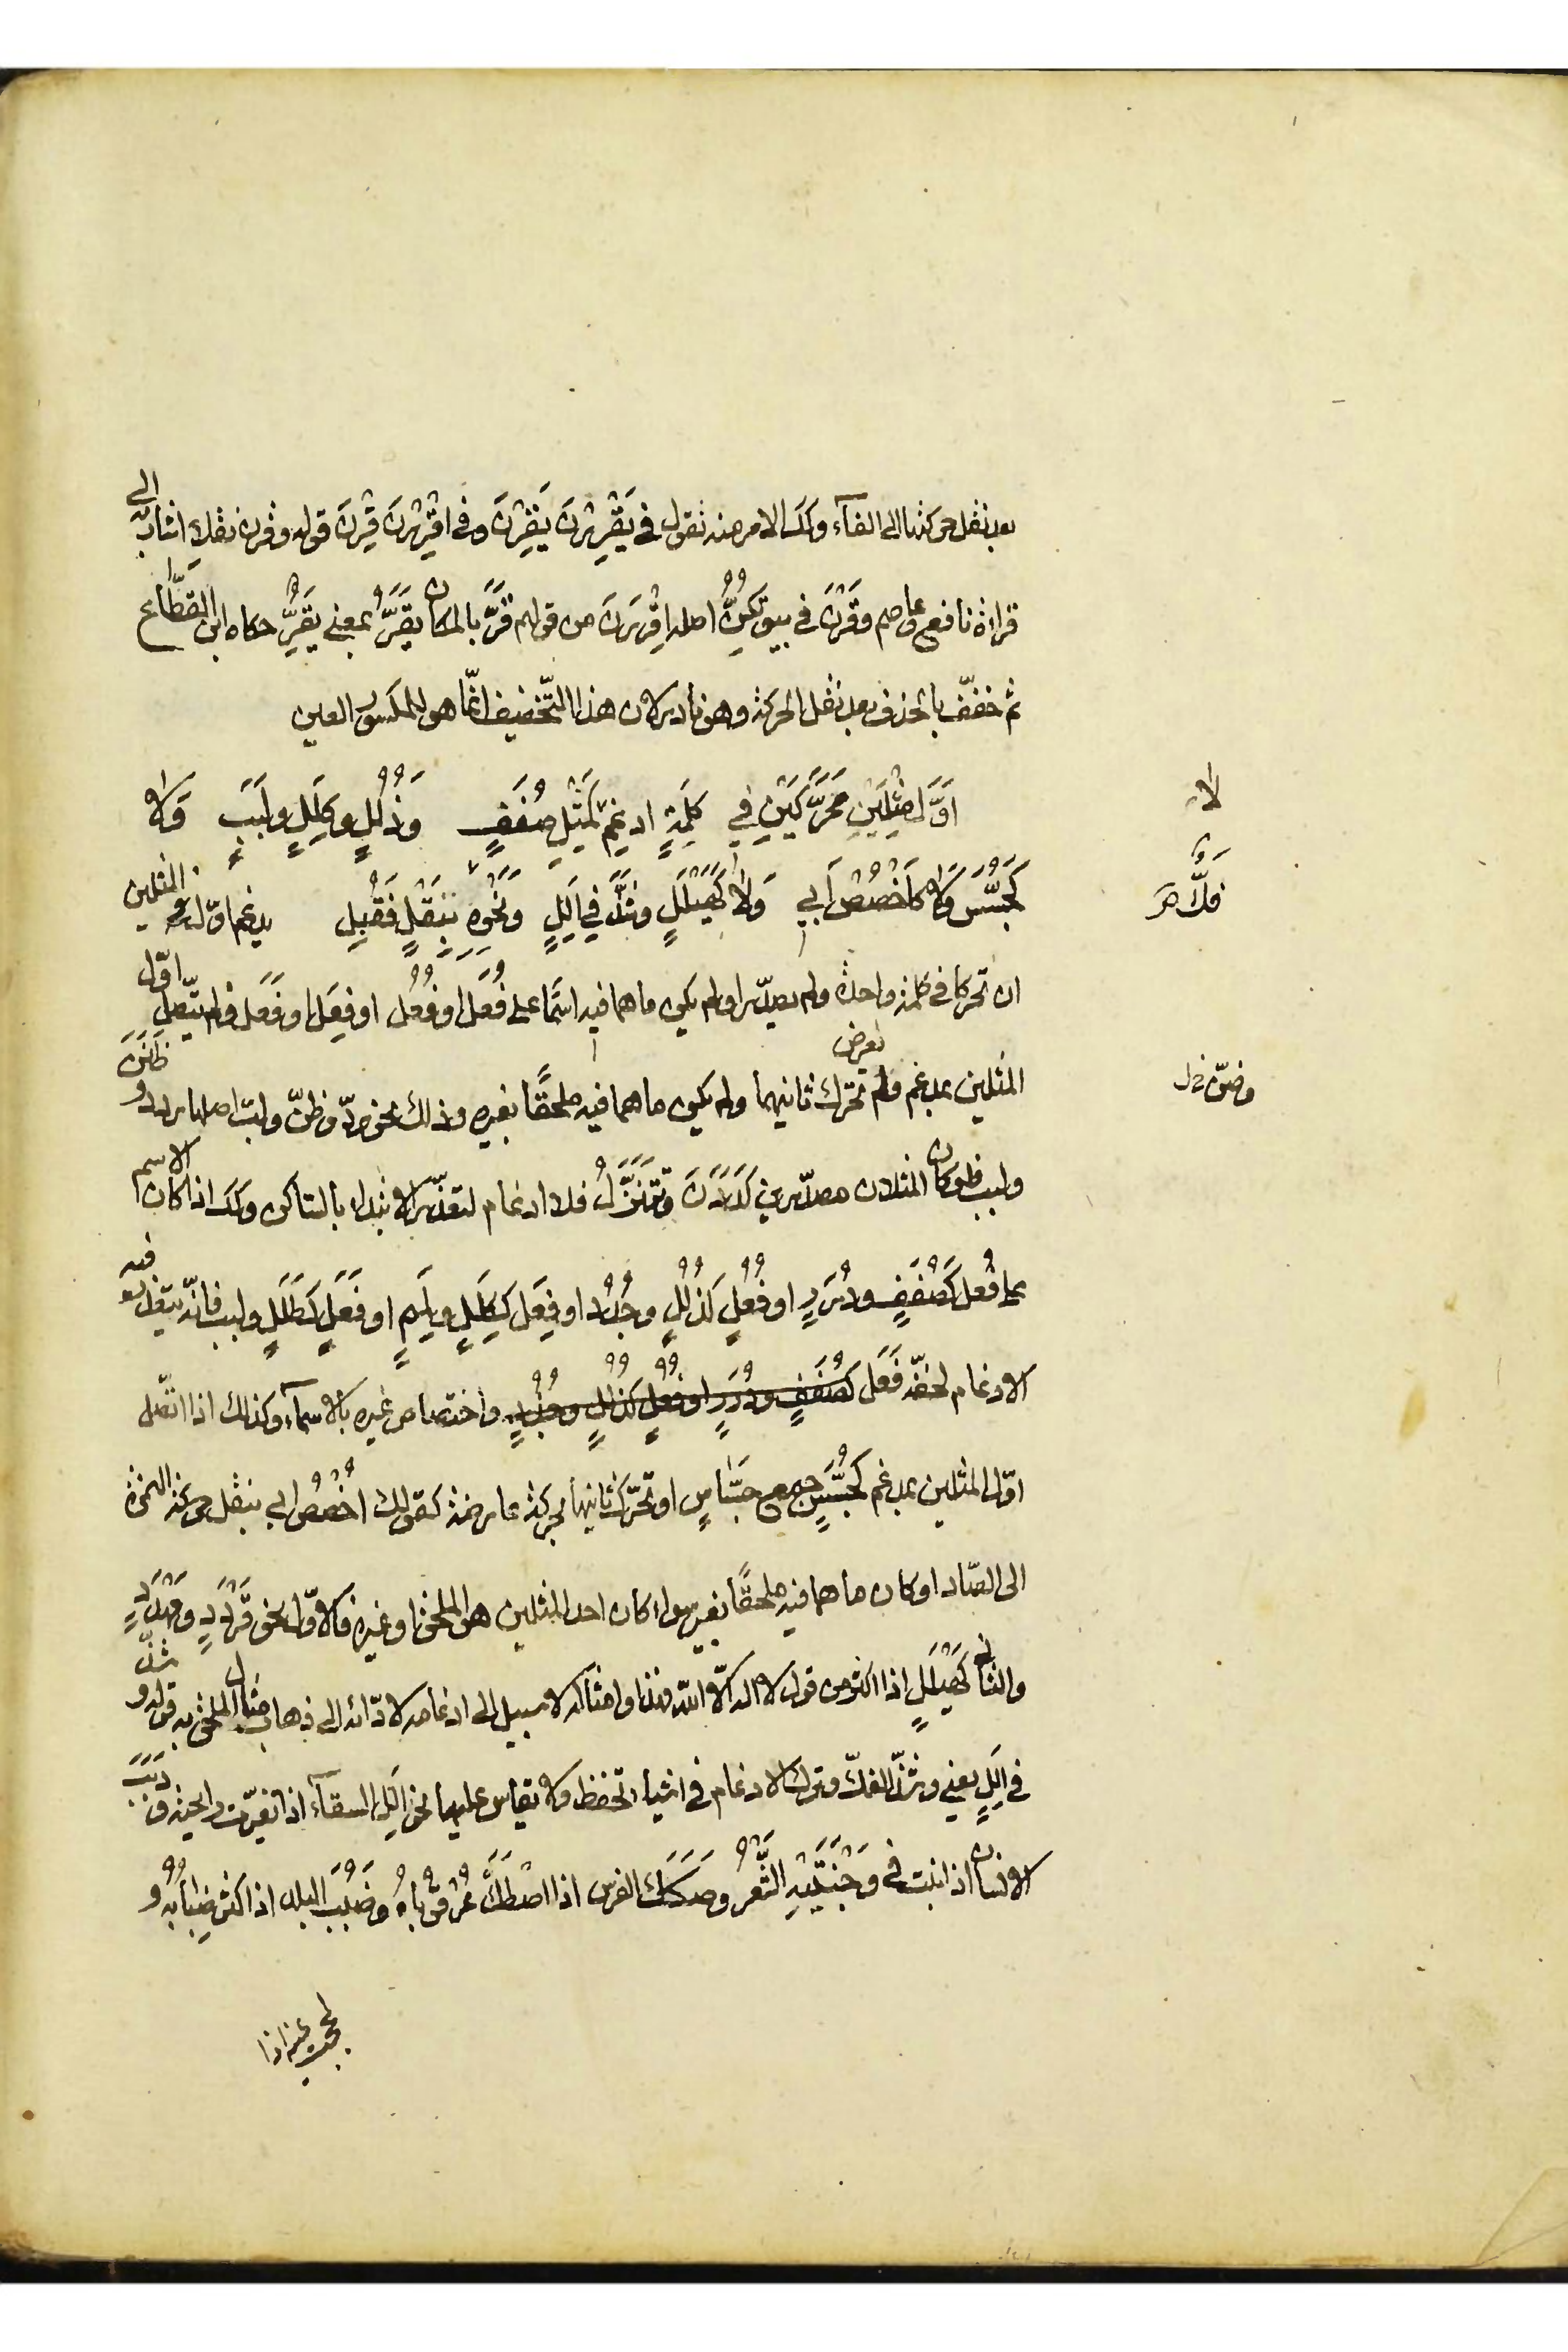 بعد نقل حركتها الى الفآء وكك الامر منه تقول في يَقْرِرْنَ يَقِرْنَ وفي اقْرِرْنَ قِرْنَ قوله وقرن نقلا اشار به الى
قراءة نافع وعاصم وقَرْنَ في بيوتِكُنَّ اصله اقْرَرنَ من قولهم قَرَّ بالمكان يَقَرُّ بمعنى يَقِرُّ حكاه ابن القَطّاع
ثم خفّف بالحذف بعد نقل الحركة وهو نادر لان هذا التّخفيف انّما هو للمكسور العين
اَوَّلَ مِثْلَيْنِ مُحَرَّكَيْنِ فِي كِلْمَةٍ ادغِمْ لَا كَمِثْلِ صُفَفٍ وَذُلُلٍ وكِلَلٍ ولَبَبٍ وَلَا
كَجُسَّسٍ وَلَا كَاخْصُصَ اَبِي وَلَا كَهَيْلَلٍ وشَذَّ فِي اَلِلٍ وَنَحْوِهِ فَكٌّ بِنَقْلٍ فَقُبِلَ يدغم اوّل المثلين
ان تحركا في كلمة واحدة ولم يصدّرا ولم يكن ما هما فيه اسما على فُعَل او فُعُل او فِعَل او فَعَل ولم يتّصل اوّل
المثلين بمدغم ولم يعرض تحرك ثانيهما ولم يكن ما هما فيه ملحقًا بغيره وذلك نحو ردّ وظنّ ولبّ اصلها ردد و ظَنَنَ
ولبب فلو كان المثلان مصدّرين كدَدَنَ وتَتَنَزَّلُ فلا ادغام لتعذّر الابتداء بالساكن وكك اذا كان الاسم
على فُعَل كَصُفَفٍ ودُرَرٍ او فُعُلٍ كَذُلُلٍ وجُدُد او فِعَل كَكِلَلٍ ولِمَمٍ او فَعَلٍ كَطَلَلٍ ولبب فانّه يتعذر فيه
الادغام لخفّة فَعَل كصُفَفٍ ودُرَرٍ او فُعُلٍ كذُلُلٍ وجُدُدٍ واختصاص غيره بالاسمآء وكذلك اذا اتّصل
اوّل المثلين بمدغم كَجُسَّسٍ جمع جَسَّاسٍ او تحرّك ثانيهما بحركة عارضة كقولك اخْصُصَ ابي بنقل حركة الهمزة
الى الصّاد او كان ما هما فيه ملحقًا بغيره سواء كان احد المثلين هو الملحق او غيره فالاوّل نحو قَرْدَدٍ ومَهْدَدٍ
والثاني كَهَيْلَلٍ اذا اكثر من قول لا اله الّا اللّه فهذا وامثاله لا سبيل الى ادغامه لادّائه الى ذهاب مثال الملحق به قوله و شذّ
في اَلِلٍ يعني وشذّ الفكّ وترك الادغام في اشياء تحفظ ولا يقاس عليها نحو اَلِلَ السقآء اذا تغيّرت رايحته ودَبَبَ
الانسان اذا نبت في وَجْنَتَيْهِ الشَّعْرُ وصَكَكَ الفرس اذا اصْطَكَّ عُرْقُوبَاهُ وضَبُبَ البلد اذا كثر ضِبَابُهُ و
لححت عينه اذا
لا
فَكٌّ